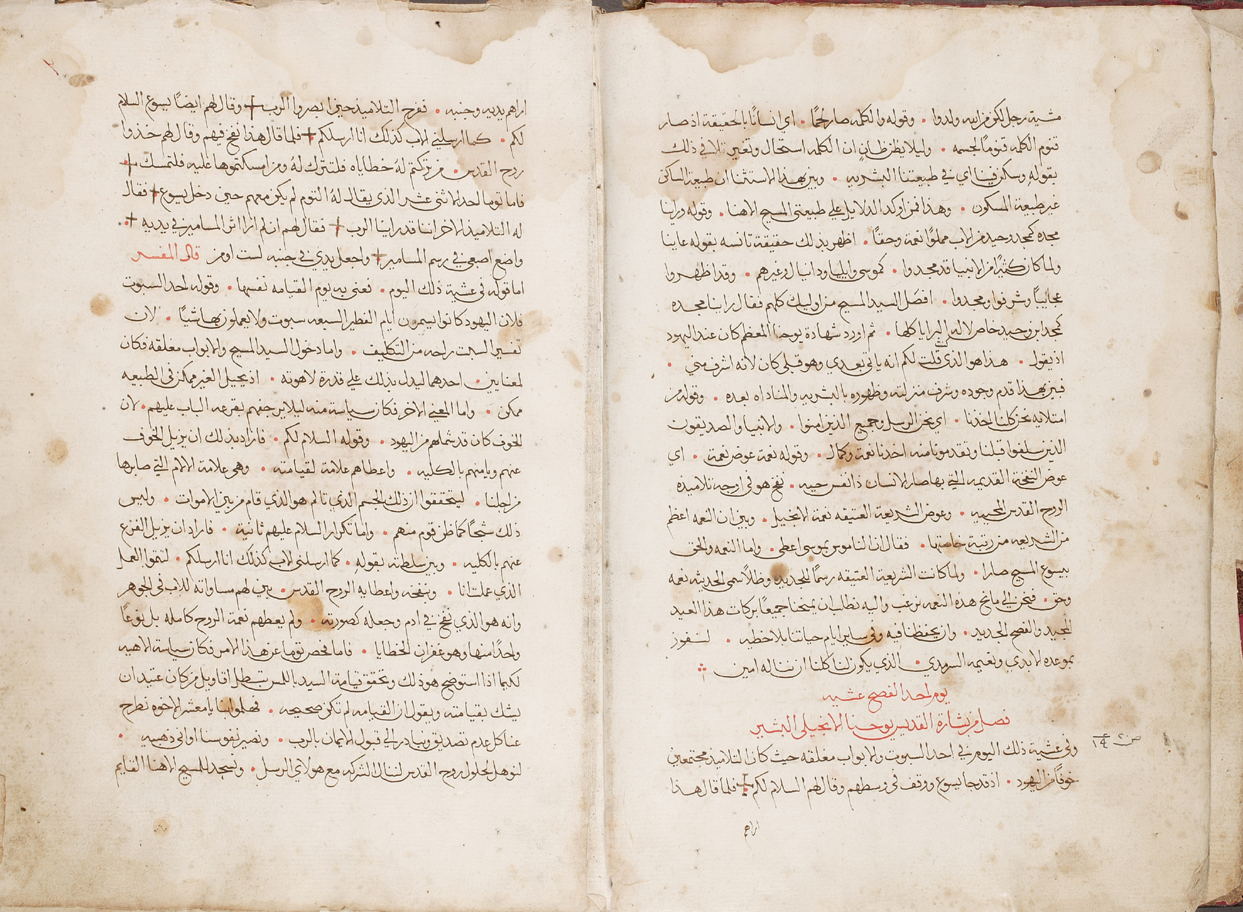 مشية رجل لكن من الله ولدوا • وقوله والكلمه صار لحمًا • اي انسانًا بالحقيقة اذ صار
قنوم الكلمه قنومًا لجسمه • وليلا يظن ظان ان الكلمه استحال وتغير تلافي ذلك
بقوله وسكن فينا اي في طبيعتنا البشريه • وبين بهذا الاستثنا ان طبيعة الساكن
غير طبيعة المسكون • وهذا فمن اوكد الدلايل علي طبيعتي المسيح الاهنا • وقوله وراينا
مجده كمجد وحيد من الاب مملوًا نعمة وحقًا • اظهر بذلك حقيقة تانسه بقوله عاينا
ولما كان كثيرًا من الانبيا قد مجدوا • كموسي وايليا ودانيال وغيرهم • وقد اظهروا
عجايبًا وشرفوا ومجدوا • افضل السيد المسيح من اوليك كلهم فقال راينا مجده
كمجد ابن وحيد خاص لاله البرايا كلها • ثم اورد شهادة يوحنا المعظم كان عند اليهود
اذ يقول • هذا هو الذي قلت لكم انه ياتي بعدي وهو قبلي كان لانه اشرف مني •
فبين بهذا قدم وجوده وشرف منزلته وظهوره بالبشريه والمناداه بعده • وقوله من
امتلايه نحن كلنا اخذنا • اي نحن الرسل وجميع الذين امنوا • والانبيا والصديقون
الذين سلفوا قبلنا وتقدمونا منه اخذنا نعمة وكمال • وقوله نعمة عوض نعمة • اي
عوض النفخة القديمه التي بها صار الانسان ذا نفس حيه • نفخ هو في اوجه تلاميذه
الروح القدس المحييه • وعوض الشريعة العتيقه نعمة الانجيل • وبين ان النعمه اعظم
من الشريعه من رتبة خاصتها • فقال ان الناموس بموسي اعطي • واما النعمه والحق
بيسوع المسيح صارا • ولما كانت الشريعة العتيقه رسمًا للجديده وظلاً سمي الحديثه نعمه
وحق • فنحن الي مانح هذه النعمه نرغب واليه نطلب ان يمنحنا جميعًا بركات هذا العيد
المجيد والفصح الجديد • وان يحفظنا فيه وفي ساير ايام حياتنا بلا خطيه • لنفوز
بموعده الابدي ونعيمه السرمدي • الذي يكون لنا كلنا ان نناله امين
يوم احد الفصح عشيه
فصل من بشارة القديس يوحنا الانجيلي البشير
وفي عشية ذلك اليوم في احد السبوت والابواب مغلقه حيث كان التلاميذ مجتمعين
خوفًا من اليهود • اذ قد جا يسوع ووقف في وسطهم وقال لهم السلام لكم + فلما قال هذا
اراهم
اراهم يديه وجنبه • ففرح التلاميذ حين ابصروا الرب + وقال لهم ايضًا يسوع السلام
لكم • كما ارسلني الاب كذلك انا ارسلكم + فلما قال هذا نفخ فيهم وقال لهم خذوا
روح القدس • من تركتم له خطاياه فلتترك له ومن امسكتموها عليه فلتمسك +
فاما توما احد الاثني عشر الذي يقال له التوم لم يكن معهم حين دخل يسوع + فقال
له التلاميذ الاخر اننا قد راينا الرب + فقال لهم ان لم ار اثر المسامير في يديه +
واضع اصبعي في رسم المسامير + واجعل يدي في جنبه لست اومن قال المفسر
اما قوله في عشية ذلك اليوم • فعني به يوم القيامه نفسها • وقوله احد السبوت
فلان اليهود كانوا يسمون ايام الفطير السبعه سبوت ولا يعملون بها شيًا • لان
تفسير السبت راحه من التكليف • واما دخول السيد المسيح والابواب مغلقه فكان
لمعنايين • احدهما ليدل بذلك علي قدرة لاهوته • اذ يجعل الغير ممكن في الطبيعه
ممكن • واما المعني الاخر فكان سياسة منه ليلا يرجفهم بقرعه الباب عليهم • لان
الخوف كان قد شملهم من اليهود • وقوله السلام لكم • فاراد بذلك ان يزيل الخوف
عنهم ويامنهم بالكليه • واعطاهم علامة لقيامته • وهي علامة الالام التي صابها
من اجلنا • ليتحققوا ان ذلك الجسم الذي تالم هو الذي قام من بين الاموات • وليس
ذلك شبحًا كما ظن قوم منهم • واما تكرار السلام عليهم ثانية • فاراد ان يزيل الفزع
عنهم بالكليه • وبين سلطانه بقوله • كما ارسلني الاب كذلك انا ارسلكم • لتقوا العمل
الذي عملت انا • وبنفخه واعطايه الروح القدس • بين لهم مساواته للاب في الجوهر
وانه هو الذي نفخ في ادم وجعله كصورته • ولم يعطهم نعمة الروح كامله بل نوعًا
واحدًا منها وهو غفران الخطايا • فاما فحص توما عن هذا الامر فكان سياسة الاهيه
لكيما اذا استوضح هو ذلك وتحقق قيامة السيد باللمس تبطل اقاويل من كان عتيد ان
يشك بقيامته ويقول ان القيامه لم تكن صحيحه • فهلموا بنا يا معشر الاخوه نطرح
عنا كل عدم تصديق ونبادر الي قبول الايمان بالرب • ونصير نفوسنا اواني ذهبيه •
لنوهل لحلول روح القدس لننال الشركه مع هولاي الرسل • ولنسجد للمسيح الاهنا القايم